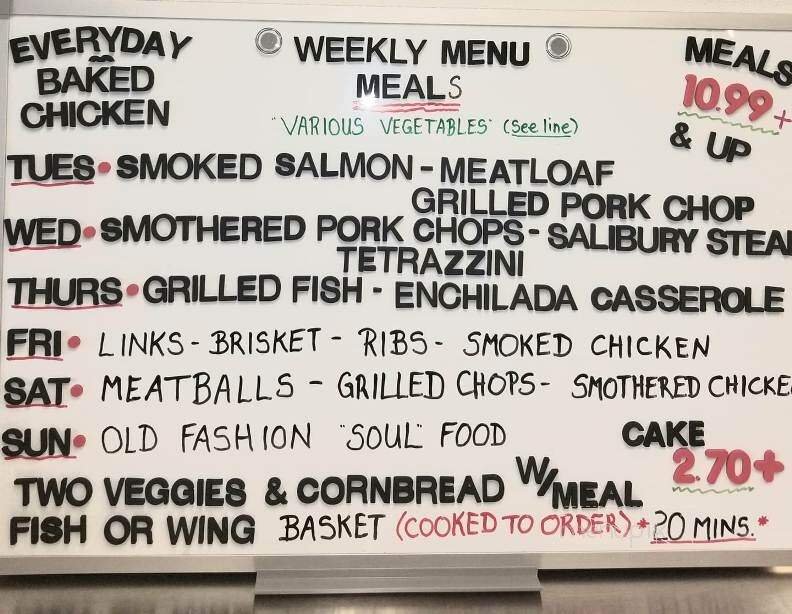 EVERYDAY
BAKED
CHICKEN
WEEKLY MENU
MEALS
"VARIOUS VEGETABLES" (See line)
MEALS
10.99+
& UP
TUES • SMOKED SALMON - MEATLOAF
GRILLED PORK CHOP
WED • SMOTHERED PORK CHOPS - SALIBURY STEA
TETRAZZINI
THURS • GRILLED FISH - ENCHILADA CASSEROLE
FRI • LINKS - BRISKET - RIBS - SMOKED CHICKEN
SAT • MEATBALLS - GRILLED CHOPS - SMOTHERED CHICKE
SUN • OLD FASHION "SOUL" FOOD
CAKE
2.70+
TWO VEGGIES & CORNBREAD W/MEAL
FISH OR WING BASKET (COOKED TO ORDER) *20 MINS.*